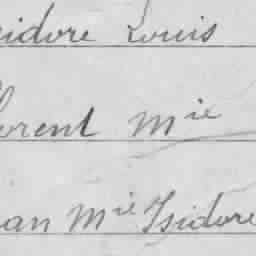 sidore Louis
lorent Mie
ean Mie Isidore